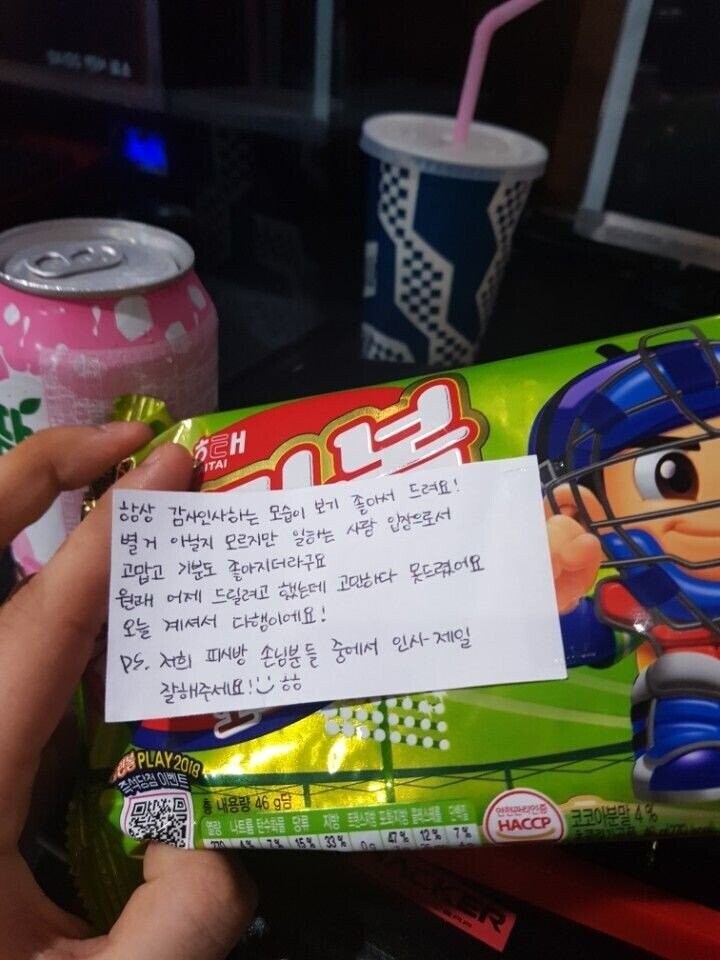 해태
항상 감사인사하는 모습이 보기 좋아서 드려요!
별 거 아닐지 모르지만 일하는 사람 입장으로서
고맙고 기분도 좋아지더라구요
원래 어제 드릴려고 했는데 고민하다 못드렸어요
오늘 계셔서 다행이에요!
PS. 저희 피시방 손님분들 중에서 인사 제일
잘해주세요! ㅎㅎ
PLAY 2018
즉석당첨 이벤트
총 내용량 46 g당
나트륨 탄수화물 당류 지방 트랜스지방 포화지방 콜레스테롤 단백질
7% 15% 33% 0g 47% 12% 7%
안전관리인증
HACCP
코코아분말 4%